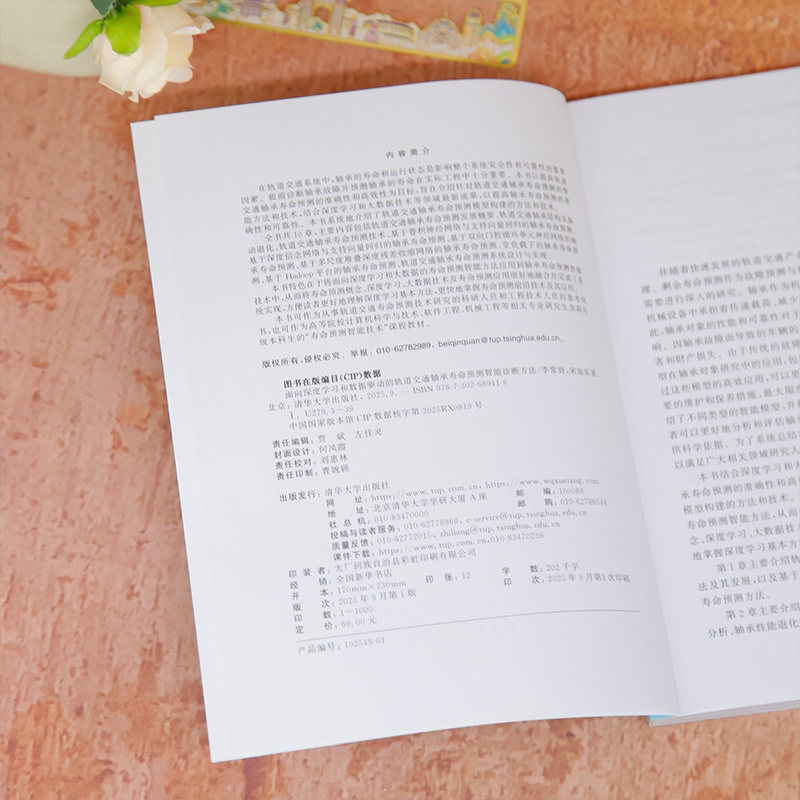 内容简介
在轨道交通系统中，轴承的寿命和运行状态是影响整个系统安全性和可靠性的重要
因素。提前诊断轴承故障并预测轴承的寿命在实际工程中十分重要。本书以提高轨道
交通轴承寿命预测的准确性和高效性为目标，旨在介绍针对轨道交通轴承寿命预测的智
能方法和技术，结合深度学习和大数据技术等领域最新成果，以提高轴承寿命预测的准
确性和可靠性。本书系统地介绍了轨道交通轴承寿命预测模型构建的方法和技术。
全书共10章，主要内容包括轨道交通轴承寿命预测发展概要、轨道交通轴承结构及振
动退化、轨道交通轴承寿命预测技术、基于卷积神经网络与支持向量回归的轴承寿命预测、
基于深度信念网络与支持向量回归的轴承寿命预测、基于双向门控循环单元神经网络的轴
承寿命预测、基于多尺度堆叠深度残差收缩网络的轴承寿命预测、变负载下的轴承寿命预
测、基于Hadoop平台的轴承寿命预测、轨道交通轴承寿命预测系统设计与实现。
本书特色在于将面向深度学习和大数据的寿命预测智能方法应用到轴承寿命预测智能
技术中，从而将寿命预测概念、深度学习、大数据技术及寿命预测应用很好地融合并完成了系
统实现，方便读者更好地理解深度学习基本方法，更快地掌握寿命预测前沿技术及其应用。
本书可作为从事轨道交通寿命预测技术研究的科研人员和工程技术人员的参考用
书，也可作为高等院校计算机科学与技术、软件工程、机械工程等相关专业研究生及高年
级本科生的“寿命预测智能技术”课程教材。
版权所有，侵权必究。举报：010-62782989，beiqinquan@tup.tsinghua.edu.cn。
图书在版编目(CIP)数据
面向深度学习和数据驱动的轨道交通轴承寿命预测智能诊断方法/李常贤，宋旭东著.
北京：清华大学出版社，2025.9. -- ISBN 978-7-302-68941-6
Ⅰ. U279.3-39
中国国家版本馆CIP数据核字第2025RX0819号
责任编辑：贾 斌 左佳灵
封面设计：何凤霞
责任校对：刘惠林
责任印制：曹婉颖
出版发行：清华大学出版社
网 址：https://www.tup.com.cn, https://www.wqxuetang.com
地 址：北京清华大学学研大厦A座 邮 编：100084
社 总 机：010-83470000 邮 购：010-62786544
投稿与读者服务：010-62776969, c-service@tup.tsinghua.edu.cn
质量反馈：010-62772015, zhiliang@tup.tsinghua.edu.cn
课件下载：https://www.tup.com.cn, 010-83470236
印 装 者：大厂回族自治县彩虹印刷有限公司
经 销：全国新华书店
开 本：170mm×230mm 印 张：12 字 数：202千字
版 次：2025年9月第1版 印 次：2025年9月第1次印刷
印 数：1～1000
定 价：69.00元
产品编号：102549-01
伴随着快速发展的轨道交通产
理。剩余寿命预测作为故障预测与
需要进行深入的研究。轴承作为机
机械设备中承担着传递载荷、减少
此，轴承对象的性能和可靠性对于
响。因轴承故障而导致的车辆的
害和财产损失。由于传统的故障
型在轴承对象研究中的应用，包
过这些模型的高效应用，可以更
要的维护和保养措施，最大限度
绍了不同类型的智能模型，并
者可以更好地分析和评估轴承
供科学依据。为了系统总结
以满足广大相关领域研究人
本书结合深度学习和大
承寿命预测的准确性和高
模型构建的方法和技术。
寿命预测智能方法，从而
念、深度学习、大数据技
地掌握深度学习基本方
第1章主要介绍轨
法及其发展，以及基于
寿命预测方法。
第2章主要介绍
分析、轴承性能退化